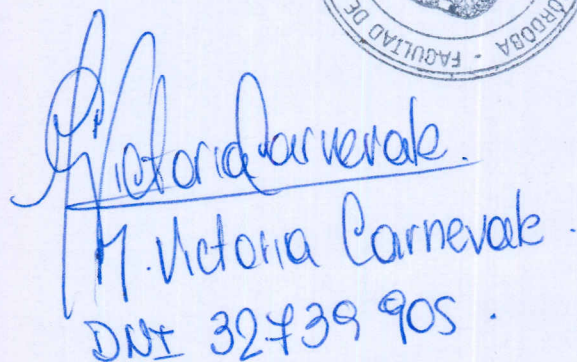 CÓRDOBA - FACULTAD DE
Victoria Carnevale.
M. Victoria Carnevale.
DNI 32739 905.